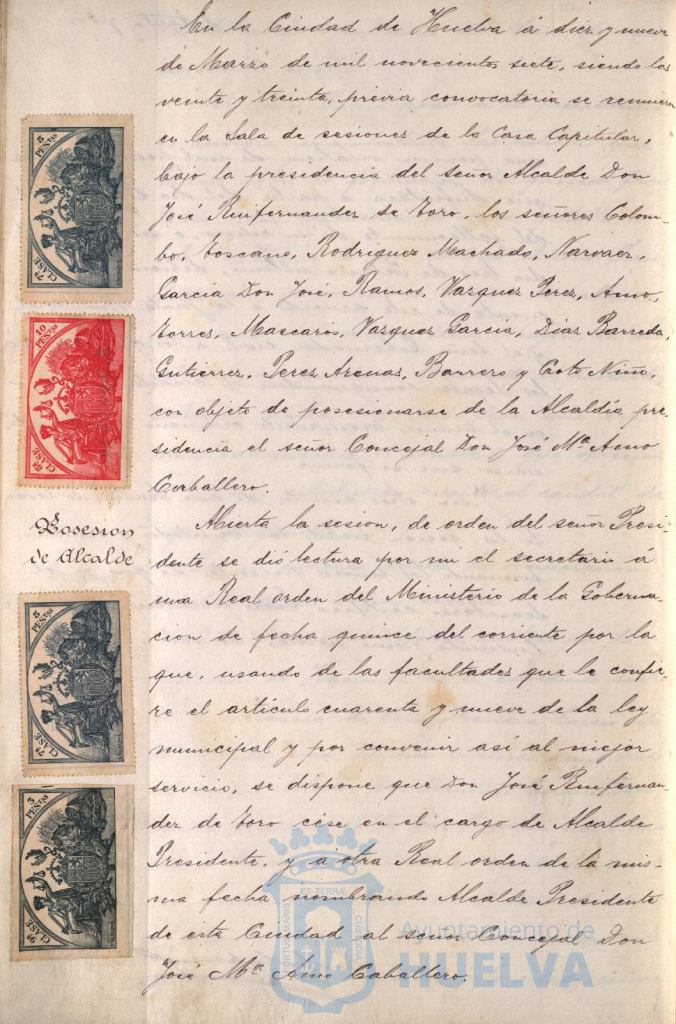 En la Ciudad de Huelva á diez y nueve
de Marzo de mil novecientos siete, siendo las
veinte y treinta, previa convocatoria se reunieron
en la Sala de sesiones de la Casa Capitular,
bajo la presidencia del señor Alcalde Don
José Ruifernandez de Toro, los señores Colom-
bo, Toscano, Rodriguez Machado, Narvaez,
García Don José, Ramos, Vazquez Perez, Amo,
Torres, Mascarós, Vazquez García, Diaz Barreda,
Gutierrez, Perez Arenas, Barrero y Coto Niño,
con objeto de posesionarse de la Alcaldía pre-
sidencia el señor Concejal Don José Mª Amo
Caballero.
Posesion
de Alcalde
Abierta la sesion, de orden del señor Presi-
dente se dió lectura por mi el secretario á
una Real orden del Ministerio de la Goberna-
cion de fecha quince del corriente por la
que, usando de las facultades que le confie-
re el artículo cuarenta y nueve de la ley
municipal y por convenir así al mejor
servicio, se dispone que Don José Ruifernan-
dez de Toro cése en el cargo de Alcalde
Presidente, y a otra Real orden de la mis-
ma fecha nombrando Alcalde Presidente
de esta Ciudad al señor Concejal Don
José Mª Amo Caballero.
5 PESTAS
CLASE 7ª
10 PESTAS
CLASE 5ª
5 PESTAS
CLASE 7ª
CLASE 9ª
PORTUS MARIS
ET TERRÆ
CUSTODIA
Ayuntamiento de
HUELVA